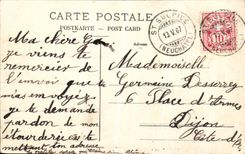 CARTE POSTALE
POSTKARTE - POST CARD
ST SULPICE
13.V.07
(NEUCHATEL)
10
Ma chère
je viens te
remercier de
l'envoi que tu
m'as envoyé je
te demande
pardon de mon
étourderie
mettant ton adresse
Mademoiselle
Germaine Desserrey
6 Place d'Armes
Dijon
Côte d'Or